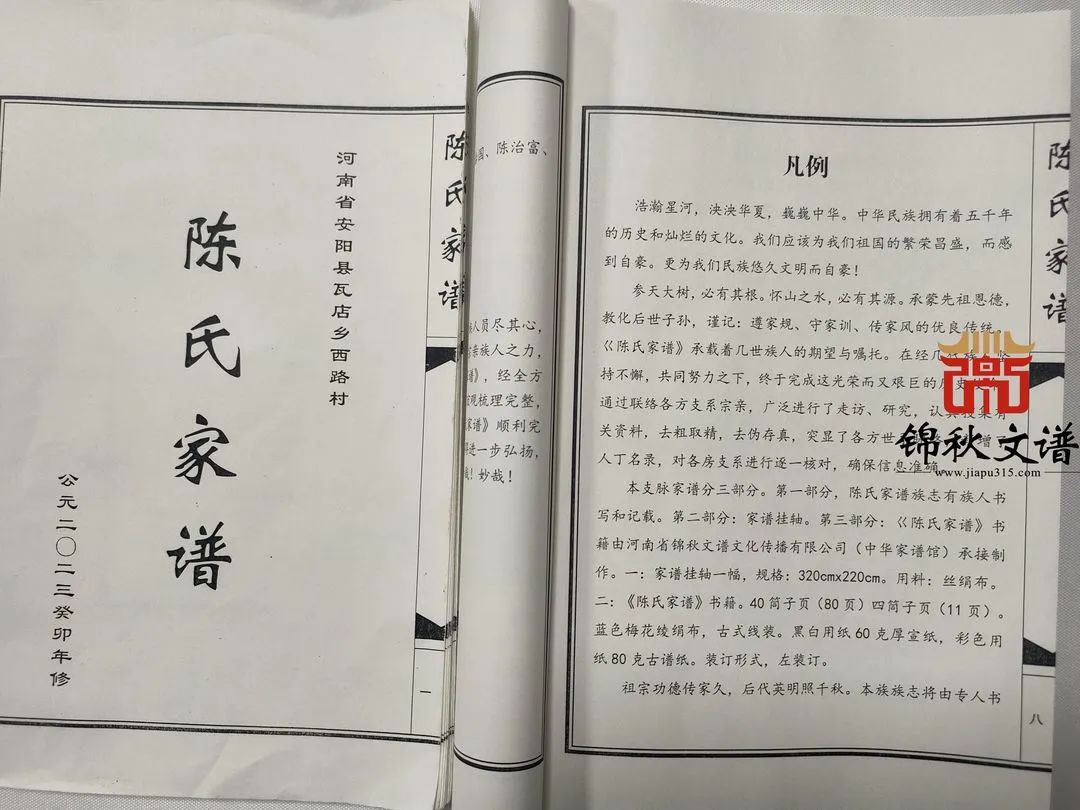 河南省安阳县瓦店乡西路村
陈氏家谱
公元二〇二三癸卯年修
陈氏家谱
一
国、陈治富、
人员尽其心，
亲族人之力，
谱》，经全方
观梳理完整，
家谱》顺利完
进一步弘扬，
哉！妙哉！
凡例
浩瀚星河，泱泱华夏，巍巍中华。中华民族拥有着五千年
的历史和灿烂的文化。我们应该为我们祖国的繁荣昌盛，而感
到自豪。更为我们民族悠久文明而自豪！
参天大树，必有其根。怀山之水，必有其源。承蒙先祖恩德，
教化后世子孙，谨记：遵家规、守家训、传家风的优良传统。
《陈氏家谱》承载着几世族人的期望与嘱托。在经几代族
持不懈，共同努力之下，终于完成这光荣而又艰巨的历史
通过联络各方支系宗亲，广泛进行了走访、研究，认真
关资料，去粗取精，去伪存真，突显了各方世
人丁名录，对各房支系进行逐一核对，确保信息准确
本支脉家谱分三部分。第一部分，陈氏家谱族志有族人书
写和记载。第二部分：家谱挂轴。第三部分：《陈氏家谱》书
籍由河南省锦秋文谱文化传播有限公司（中华家谱馆）承接制
作。一：家谱挂轴一幅，规格：320cmx220cm。用料：丝绢布。
二：《陈氏家谱》书籍。40筒子页（80页）四筒子页（11页）。
蓝色梅花绫绢布，古式线装。黑白用纸60克厚宣纸，彩色用
纸80克古谱纸。装订形式，左装订。
祖宗功德传家久，后代英明照千秋。本族族志将由专人书
陈氏家谱
八
锦秋文谱
www.jiapu315.com